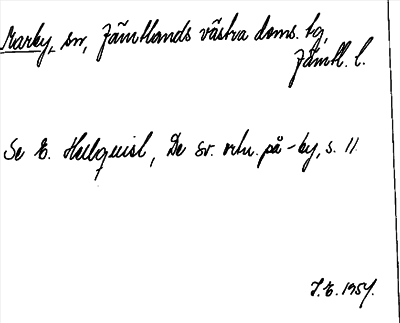 Marby, sn, Jämtlands västra doms. tg,
Jämtl. l.
Se E. Hellquist, De sv. ortn. på -by, s. 11
J.E. 1957.